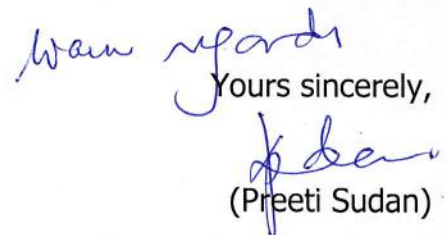 Warm regards
Yours sincerely,
(Preeti Sudan)